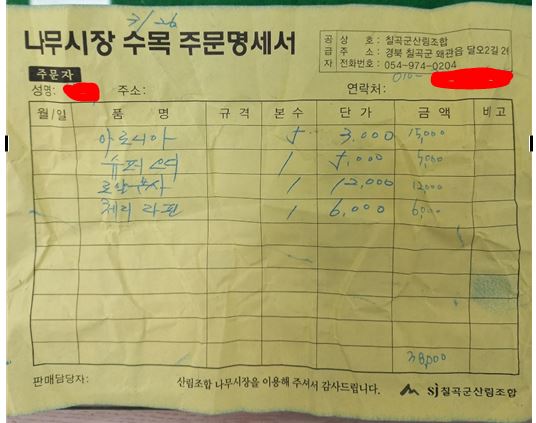 3/26
나무시장 수목 주문명세서
공급자
상호 : 칠곡군산림조합
주소 : 경북 칠곡군 왜관읍 달오2길 26
전화번호 : 054-974-0204
주문자
성명: 주소: 연락처: 010-
월/일 품명 규격 본수 단가 금액 비고
아로니아 5 3,000 15,000
슈퍼오디 1 5,000 5,000
1 12,000 12,000
체리 라핀 1 6,000 6,000
38,000
판매담당자: 산림조합 나무시장을 이용해 주셔서 감사드립니다. sj 칠곡군산림조합